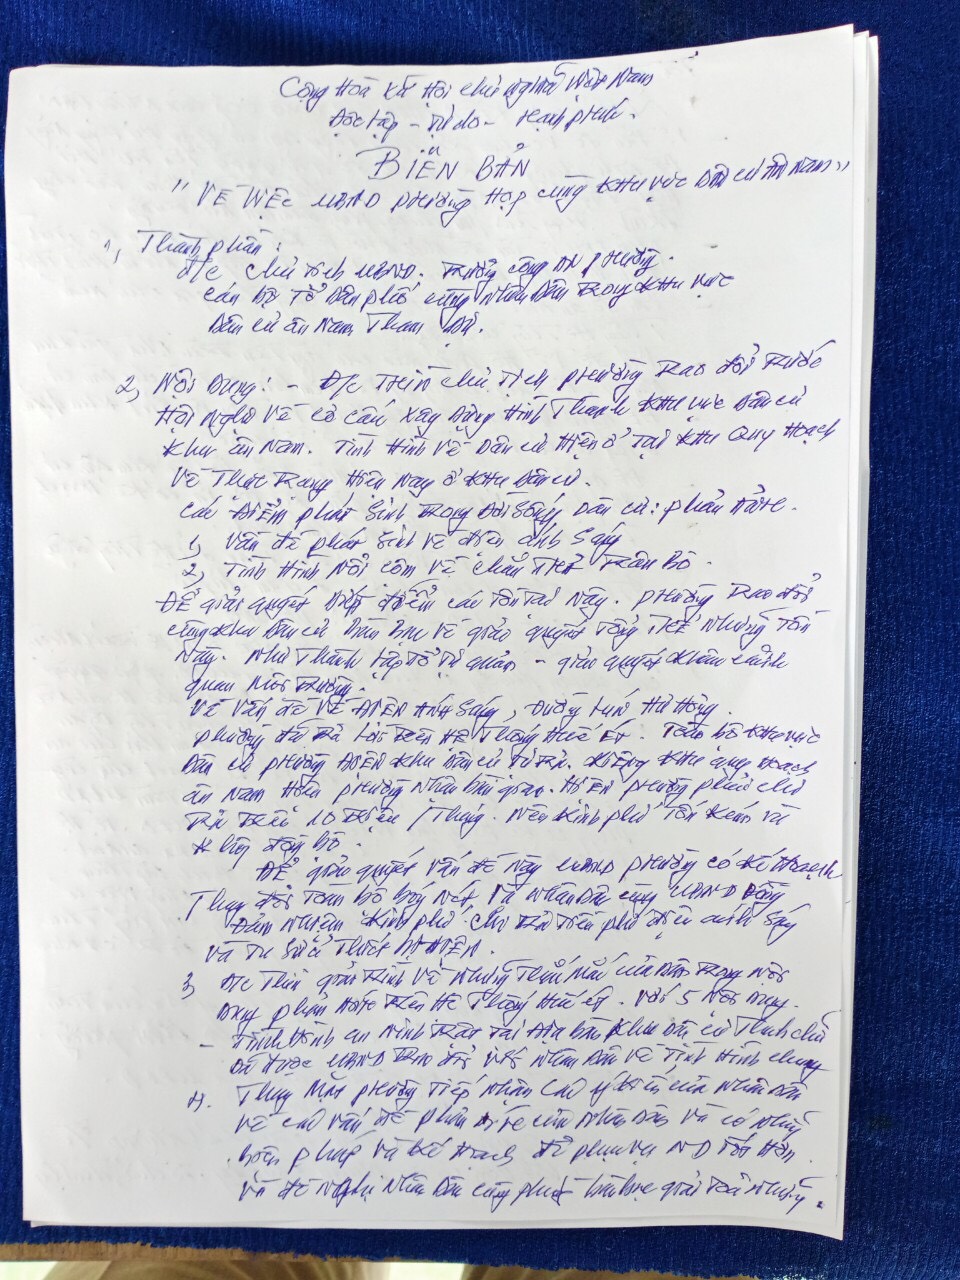 Cộng Hòa Xã Hội chủ nghĩa Việt Nam
Độc lập - Tự do - Hạnh phúc.
BIÊN BẢN
"VỀ VIỆC UBND phường Họp cùng KHU VỰC Dân cư Ân Nam"
1, Thành phần:
Đ/c chủ tịch UBND. Trưởng công AN phường.
cán bộ Tổ Dân phố cùng Nhân Dân Trong KHU VỰC
Dân cư ân Nam Tham Dự.
2, Nội Dung: - Đ/c chủ Tịch phường Trao đổi Trước
Hội Nghị về cơ cấu xây Dựng Hình Thành KHU VỰC Dân cư
Khu ân Nam. Tình Hình về Dân cư Hiện ở Tại KHU Quy Hoạch
về Thực Trạng Hiện Nay ở KHU Dân cư.
các ĐIỂM phát sinh Trong Đời Sống Dân cư: phản ánh.
1, Vấn đề phát sinh về điện ánh sáng
2, Tình Hình Nổi cộm về chăn Thả Trâu Bò.
ĐỂ giải quyết điểm các tồn tại này. phường Trao đổi
cùng khu Dân cư bàn bạc về giải quyết Tổng Thể Những Tồn
Này. Như Thành lập Tổ Tự quản - giải quyết cảnh
quan Môi Trường.
Về Vấn đề VỀ ĐIỆN ÁNH sáng, Đường Hư Hỏng.
phường đã Trả lời Trên Hệ Thống. Toàn bộ KHU VỰC
Dân cư phường ĐIỆN khu Dân cư Tự Trả. Riêng KHU quy Hoạch
ân Nam phường Nhận bàn giao. HIỆN phường phải chi
Trả Trên 10 Triệu/Tháng. Nên kinh phí Tốn kém và
không đồng bộ.
ĐỂ giải quyết vấn đề này UBND phường có kế Hoạch
Thay đổi Toàn bộ, và Nhân Dân cùng UBND
Đảm Nhiệm kinh phí chi Trả Tiền phí điện ánh sáng
và Tu sửa Thiết bị ĐIỆN.
3, Đ/c giải Trình về Những Thắc Mắc của Dân Trong Nội
Dung phản ánh Trên Hệ Thống. Với 5 Nội Dung.
- Tình Hình an ninh Trật Tại địa bàn khu Dân cư
Đã được UBND Trao đổi với Nhân Dân về Tình Hình chung
4. Thay Mặt phường Tiếp Nhận các ý kiến của Nhân Dân
về các vấn đề phản ánh của Nhân Dân và có Những
biện pháp và kế Hoạch để phục vụ ND Tốt Hơn.
và đề Nghị Nhân Dân cùng giải Những.